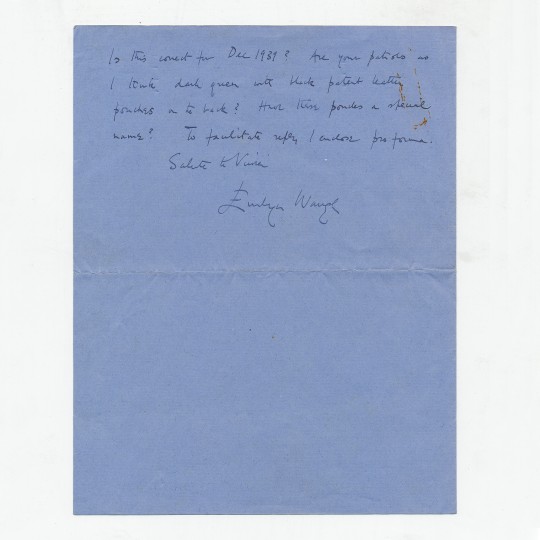 Is this correct for Dec 1939? Are your patrols as
I think dark green with black patent leather
pouches on to back? Have these pouches a special
name? To facilitate reply I enclose pro forma.
Salute to
Evelyn Waugh